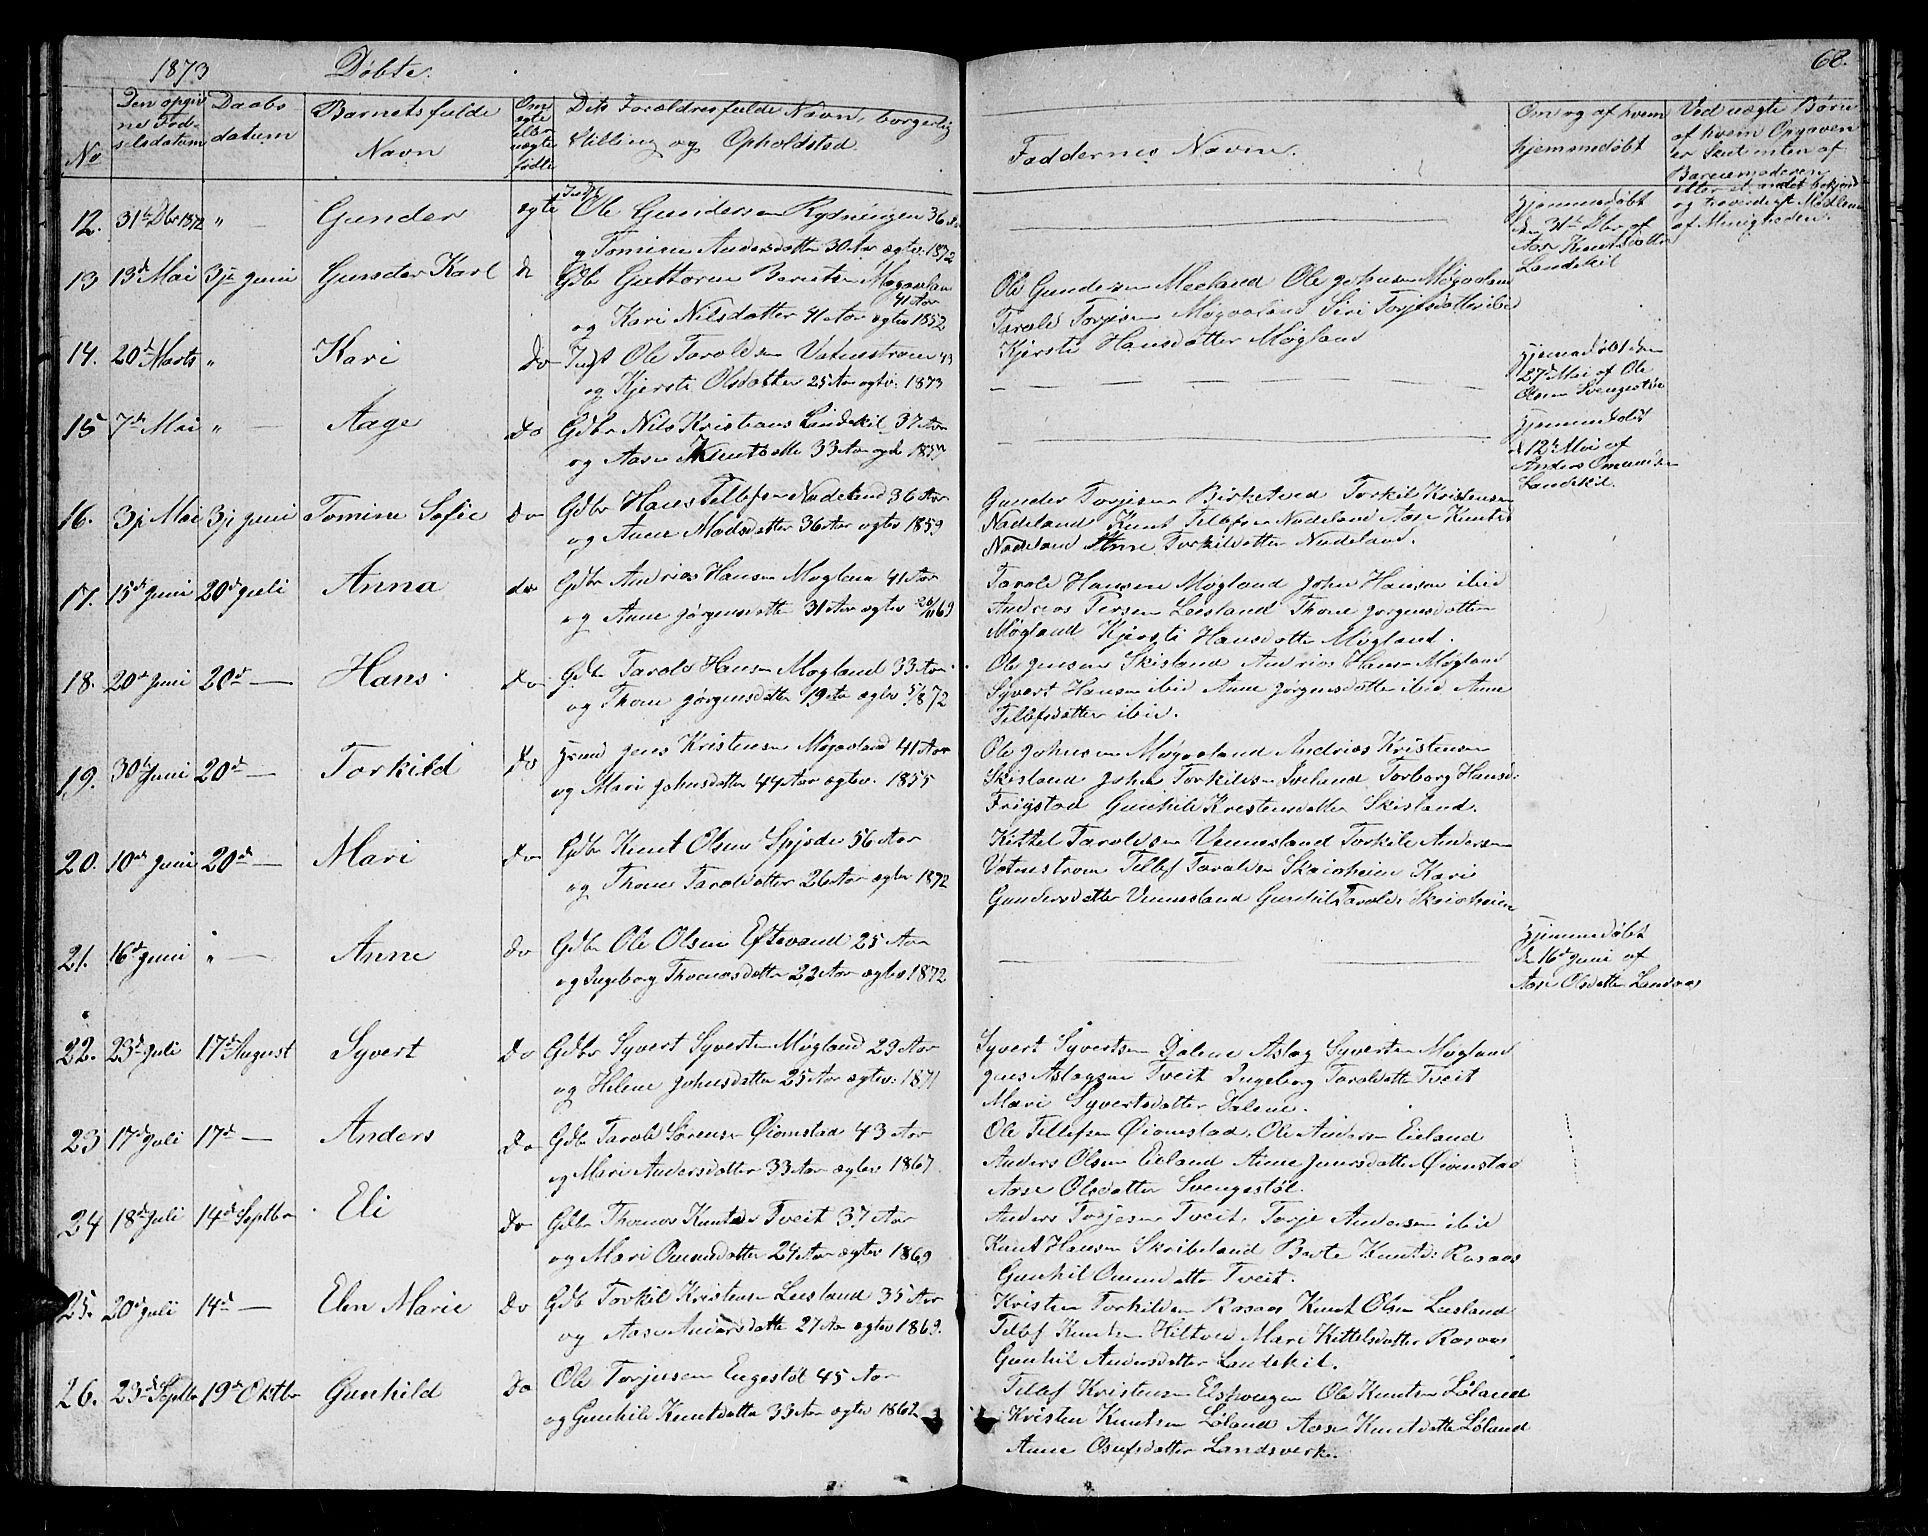 1873 Døbte.
68.
No
Den opgiv
ne Fød-
selsdatum
Daabs
datum
Barnets fulde
Navn
Om
ægte
eller
uægte
født
Dets Forældres fulde Navn, borgerlig
Stilling og Opholdsted
Faddernes Navne.
Om og af hvem
hjemmedøbt
Ved uægte Børn
af hvem Opgaven
er Skeet enten af
Barnemoderen
eller et andet bekjend
og troværdigt Medlem
af Menigheden.
12. 31te Dbr 1872 " Gunder ægte Indst Ole Gundersen Rysningen 36
og Tomine Andersdatter 30 Aar ægtev. 1872
Hjemmedøbt
den 31te Dbr af
Aase Knutsdatter
Landekil
13 13d Mai 3je Juni Gunder Karl do Gdbr Guttorm Berntsen Møgaaland
41 Aar
og Kari Nilsdatter 41 Aar ægtev 1852
Ole Gundersen Meeland Ole Johnsen Møgaaland
Tarald Torjesen Møgaaland Siri Torjesdatter ibid
Kjersti Hansdatter Møgland
14. 20d Marts " Kari do Indst Ole Taraldsen Vatnestrøm 43
og Kjersti Olsdatter 25 Aar ægtev. 1873
Hjemmedøbt den
27d Mai af Ole
Olsen Svengestøl
15 7de Mai " Aage do Gdbr Nils Kristians Landekil 37 Aar
og Aase Knutsdatte 33 Aar 1857
Hjemmedøbt
d 12te Mai af
Anders Omundsen
Landekil.
16. 3je Mai 3je Juni Tomine Sofie do Gdbr Hans Tellefsen Nadeland 36 Aar
og Anne Madsdatter 36 Aar ægtev 1859
Gunder Torjesen Birketved Torkil Kristensen
Nadeland Knut Tellefsen Nadeland Aase Knutsd
Nadeland Anne Torkildatter Nadeland.
17. 15de Juni 20d Juli Anna do Gdbr Andrias Hansen Møgland 41 Aar
og Anne Jørgensdatte 31 Aar ægtev 69
Tarald Hansen Møgland John Hansen ibid
Andreas Tersen Leesland Thone Jørgensdatter
Møgland Kjersti Hansdatte Møgland.
18. 20de Juni 20d Hans do Gdbr Tarald Hansen Møgland 33 Aar
og Thone Jørgensdatte 19 Aar ægtev 5/8 72
Ole Jensen Skisland Andrias Hansen Møgland
Syvert Hansen ibid Anne Jørgensdatte ibid Anne
Tellefsdatter ibid.
19. 30te Juni 20d Torkild do Hsmd Jens Kristensen Møgaaland 41 Aar
og Mari Johnsdatter 44 Aar ægtev. 1855
Ole Johnsen Møgaaland Andrias Kristensen
Skisland John Torkildsen Iveland Torborg Hansd:
Frigstad Gunhild Kristensdatter Skisland.
20. 10de Juni 20d Mari do Gdbr Knut Olsen Spjode 56 Aar
og Thone Taraldatter 26 Aar ægtev 1872
Kittel Taraldsen Vennesland Torkild Andersen
Vatnestrøm Tellef Taraldsen Skaiaheien Kari
Gundersdatter Vennesland Gunhild Taralds Skaiaheien
21. 16de Juni " Anne do Gdbr Ole Olsen Eftevand 25 Aar
og Ingeborg Thomasdatte 22 Aar ægtev 1872
Hjemmedøbt
den 16de Juni af
Aase Olsdatter Landaas
22. 23d Juli 17d August Syvert do Gdbr Syvert Syvertsen Møgland 29 Aar
og Helene Johnsdatter 25 Aar ægtev: 1871
Syvert Syvertsen Dalene Aslag Syvertsen Møgland
Jens Aslagsen Tveit Ingeborg Taraldatte Tveit
Mari Syvertsdatter Dalene.
23 17d Juli 17d Anders do Gdbr Tarald Sørensen Øiomstad 43 Aar
og Mari Andersdatter 33 Aar ægtev 1867.
Ole Tellefsen Øiomstad. Ole Andersen Eieland
Anders Olsen Eieland Anne Jensdatter Øiomstad
Aase Olsdatter Svengestøl.
24 18d Juli 14d Septbr Eli do Gdbr Thomas Knutsen Tveit 37 Aar
og Mari Omundsdatter 24 Aar ægtev 1869
Anders Torjesen Tveit. Torje Andersen ibid
Knut Hansen Skribeland Berte Knuts: Rosaas
Gunhil Omundsdatter Tveit.
25. 20d Juli 14d Elen Marie do Gdb Torkil Kristensen Leesland 35 Aar
og Aase Andersdatte 27 Aar ægtev 1869.
Kristen Torkildsen Rosaas Knut Olsen Leesland
Tellef Knutsen Hiltved Mari Kittelsdatter Rosaas
Gunhil Andersdatter Landekil.
26. 23d Septbr 19d Oktbr Gunhild do Ole Torjusen Engestøl 45 Aar
og Gunhild Knutsdatte 33 Aar ægtev 1862
Tellef Kristensen Ole Knutsen Løland
Kristen Knutsen Løland Aase Knutsdatte Løland
Anne Osufsdatter Landsverk.